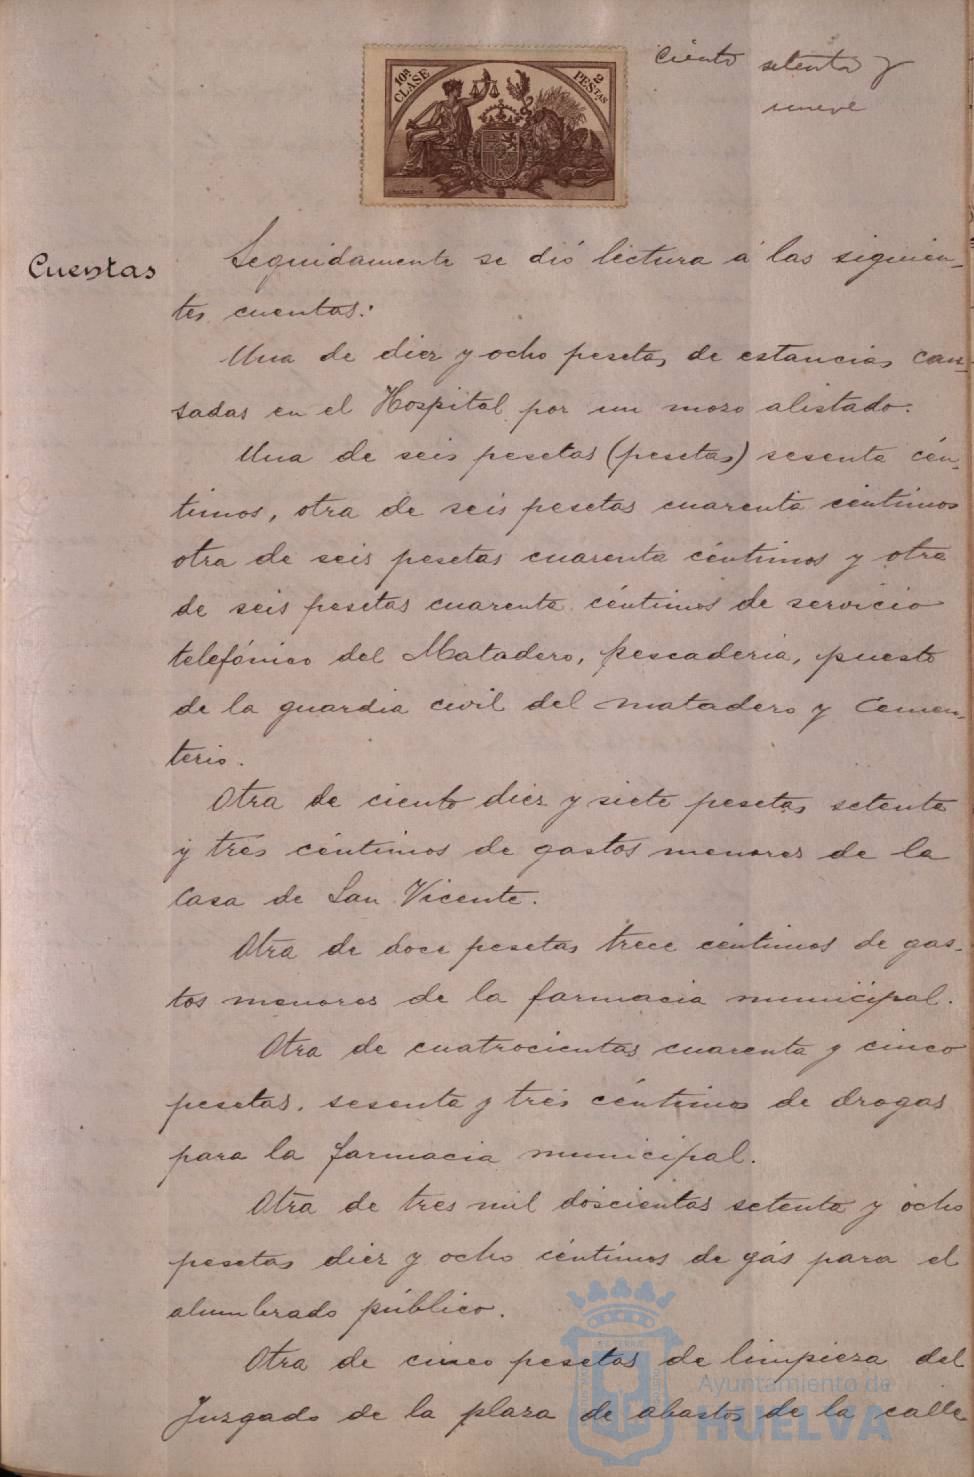 ciento setenta y
nueve
10ª CLASE
2 PESTAS
Cuentas
Seguidamente se dió lectura á las siguien-
tes cuentas:
Una de diez y ocho pesetas de estancias cau-
sadas en el Hospital por un mozo alistado.
Una de seis pesetas (pesetas) sesenta cén-
timos, otra de seis pesetas cuarenta céntimos
otra de seis pesetas cuarenta céntimos y otra
de seis pesetas cuarenta céntimos de servicio
telefónico del Matadero, pescaderia, puesto
de la guardia civil del matadero y Cemen-
terio.
Otra de ciento diez y siete pesetas setenta
y tres céntimos de gastos menores de la
Casa de San Vicente.
Otra de doce pesetas trece céntimos de gas-
tos menores de la farmacia municipal.
Otra de cuatrocientas cuarenta y cinco
pesetas, sesenta y tres céntimos de drogas
para la farmacia municipal.
Otra de tres mil doscientas setenta y ocho
pesetas diez y ocho céntimos de gás para el
alumbrado público.
Otra de cinco pesetas de limpieza del
Juzgado de la plaza de abastos de la calle
Ayuntamiento de
HUELVA